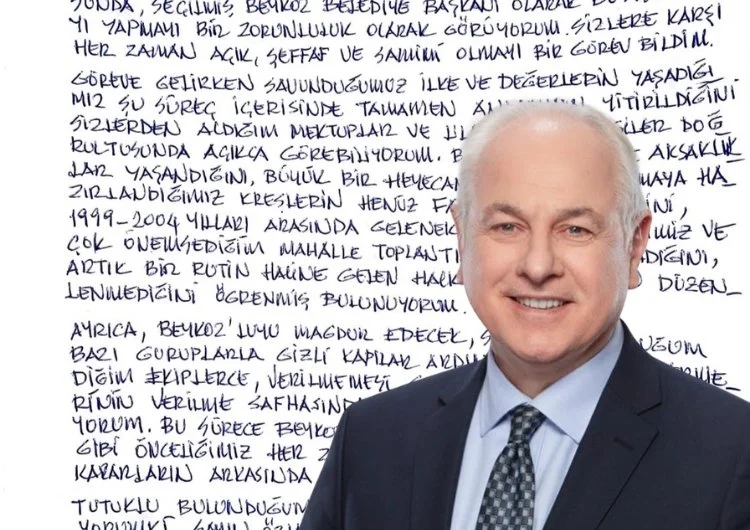 SUNDA, SEÇİLMİŞ BEYKOZ BELEDİYE BAŞKANI OLARAK
YI YAPMAYI BİR ZORUNLULUK OLARAK GÖRÜYORUM. SİZLERE KARŞI
HER ZAMAN AÇIK, ŞEFFAF VE SAMİMİ OLMAYI BİR GÖREV BİLDİM.
GÖREVE GELİRKEN SAVUNDUĞUMUZ İLKE VE DEĞERLERİN YAŞADIĞI
MIZ ŞU SÜREÇ İÇERİSİNDE TAMAMEN YİTİRİLDİĞİNİ
SİZLERDEN ALDIĞIM MEKTUPLAR VE DOĞ
RULTUSUNDA AÇIKÇA GÖREBİLİYORUM. VE AKSAKLIK
LAR YAŞANDIĞINI, BÜYÜK BİR HEYECAN MAYA HA
ZIRLANDIĞIMIZ KREŞLERİN HENÜZ İNİ,
1999-2004 YILLARI ARASINDA GELENEK MİZ VE
ÇOK ÖNEMSEDİĞİM MAHALLE TOPLANTI DIĞINI,
ARTIK BİR RUTİN HALİNE GELEN HALK DÜZEN_
LENMEDİĞİNİ ÖĞRENMİŞ BULUNUYORUM.
AYRICA, BEYKOZ'LUYU MAĞDUR EDECEK, UĞUM
BAZI GURUPLARLA GİZLİ KAPILAR ARDIN
DİĞİM EKİPLERCE, VERİLMEMESİ
RİNİN VERİLME SAFHASIND
YORUM. BU SÜRECE BEYKO
GİBİ ÖNCELİĞİMİZ HER
KARARLARIN ARKASINDA
TUTUKLU BULUNDUĞUM